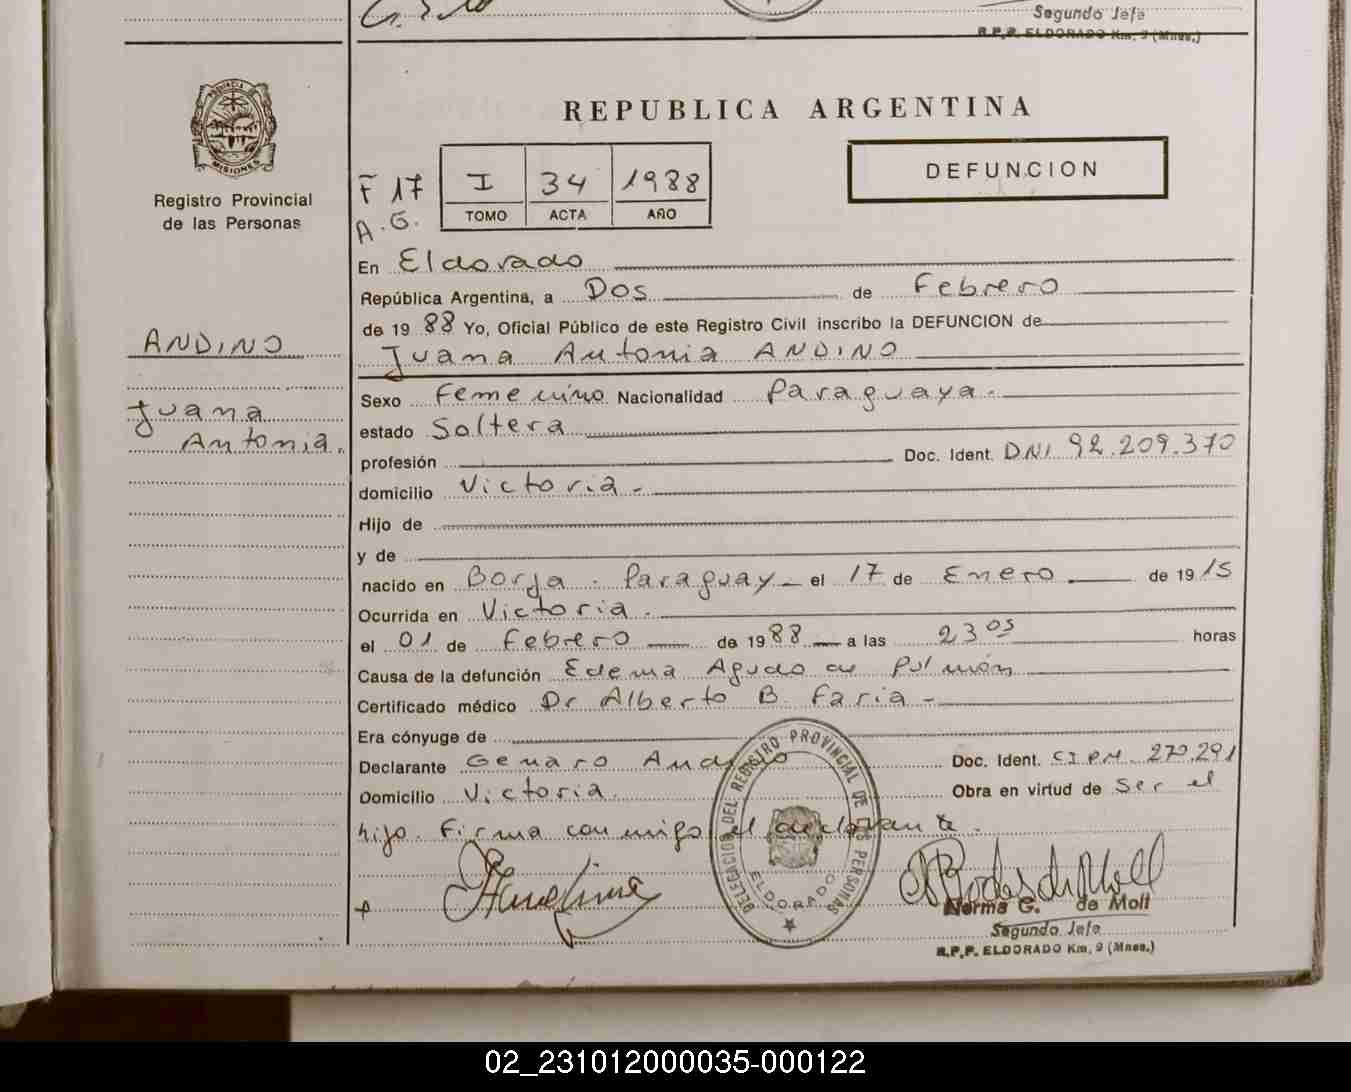 Segundo Jefe
R.P.P. ELDORADO Km. 9 (Mnes.)
PROVINCIA DE
MISIONES
Registro Provincial
de las Personas
REPUBLICA ARGENTINA
DEFUNCION
F 17
A.G.
I 34 1988
TOMO ACTA AÑO
En Eldorado
República Argentina, a Dos de Febrero
de 19 88 Yo, Oficial Público de este Registro Civil inscribo la DEFUNCION de
ANDINO
Juana Antonia ANDINO
Juana
Antonia.
Sexo Femenino Nacionalidad Paraguaya.
estado Soltera
profesión Doc. Ident. DNI 92.209.370
domicilio Victoria.
Hijo de
y de
nacido en Borja. Paraguay el 17 de Enero de 19 15
Ocurrida en Victoria.
el 01 de Febrero de 19 88 a las 23 05 horas
Causa de la defunción Edema Agudo de Pulmón
Certificado médico Dr Alberto B. Faria
Era cónyuge de
Declarante Genaro Andino Doc. Ident. CIPM. 270.291
Domicilio Victoria. Obra en virtud de ser el
hijo. Firma conmigo el declarante.
DELEGACION DEL REGISTRO PROVINCIAL DE LAS PERSONAS
ELDORADO
Norma G. de Moll
Segundo Jefe
R.P.P. ELDORADO Km. 9 (Mnes.)
02_231012000035-000122